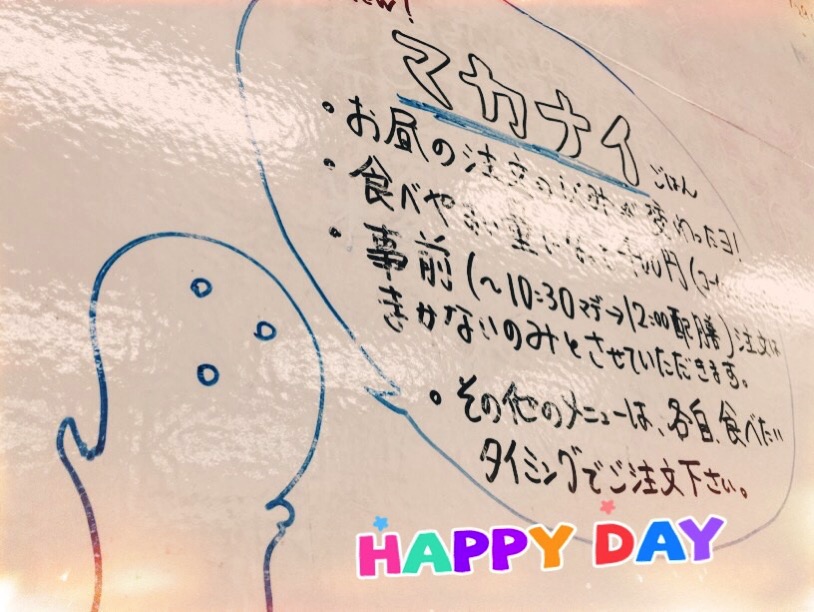 マカナイ
ごはん
・お昼の注文の仕
・食べやすい量になって
・事前(〜10:30マデ→12:00配膳)注文は
まかないのみとさせていただきます。
・その他のメニューは、各自、食べたい
タイミングでご注文下さい。
HAPPY DAY